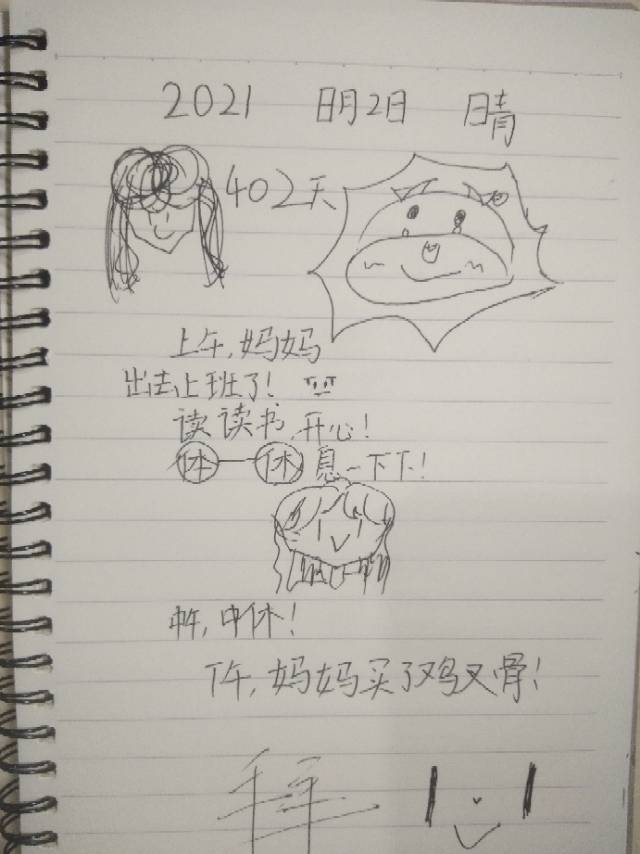 2021 8月2日 晴
402天
上午,妈妈
出去上班了!
读读书,开心!
休一休息一下下!
中午,中休!
下午,妈妈买了鸡叉骨!